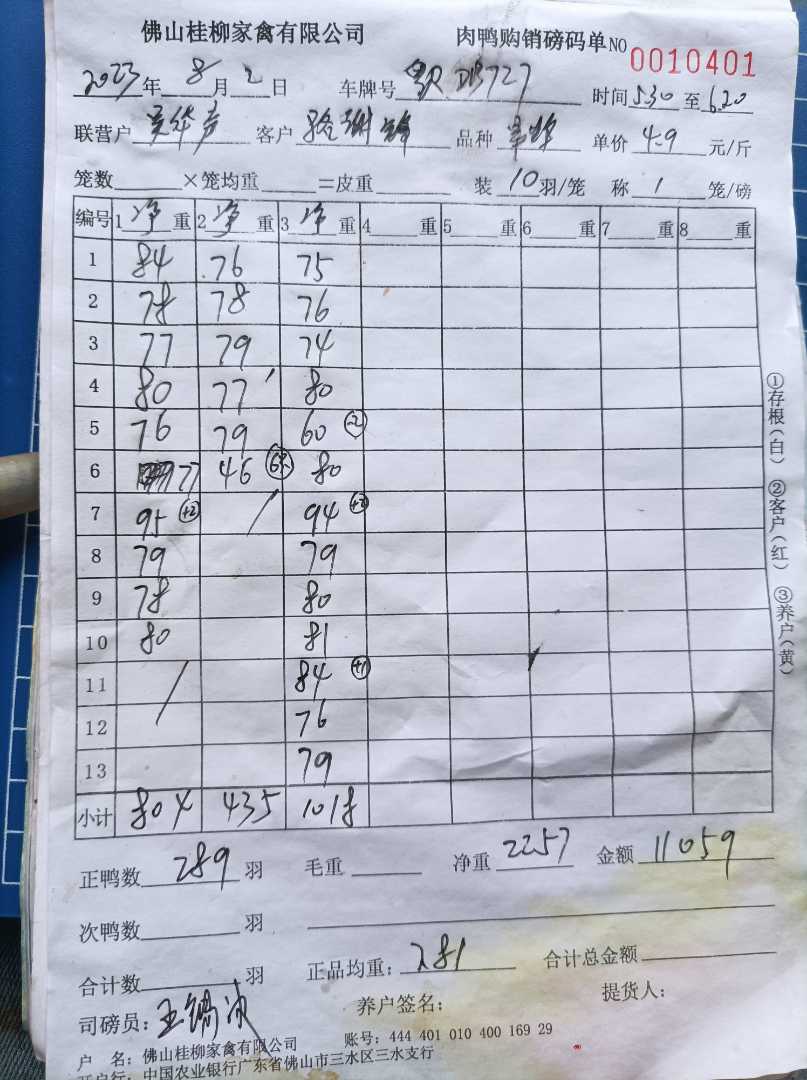 佛山桂柳家禽有限公司 肉鸭购销磅码单NO 0010401
2023年8月2日 车牌号 727 时间530至6.20
联营户 客户 品种 单价4.9元/斤
笼数×笼均重=皮重 装10羽/笼 称1笼/磅
编号 1净重 2净重 3净重 4重 5重 6重 7重 8重
1 84 76 75
2 78 78 76
3 77 79 74
4 80 77 80
5 76 79 60 -2
6 77 46 80
7 95 +2 / 94 +2
8 79 79
9 78 80
10 80 81
11 / 84 +1
12 76
13 79
小计 804 435 1018
正鸭数289羽 毛重 净重2257 金额11059
次鸭数羽
合计数羽 正品均重:281 合计总金额
司磅员: 养户签名: 提货人:
户 名:佛山桂柳家禽有限公司 账号:444 401 010 400 169 29
开户行:中国农业银行广东省佛山市三水区三水支行
①存根(白) ②客户(红) ③养户(黄)